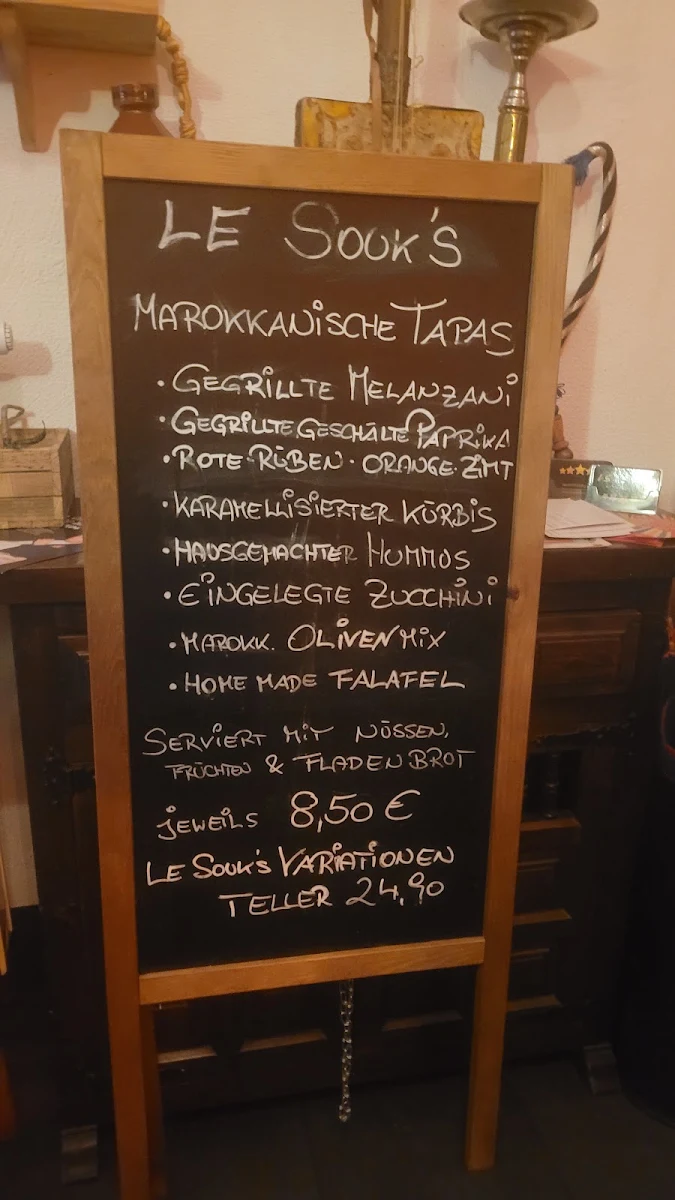 LE SOUK'S
MAROKKANISCHE TAPAS
• GEGRILLTE MELANZANI
• GEGRILLTE GESCHÄLTE PAPRIKA
• ROTE-RÜBEN - ORANGE-ZIMT
• KARAMELLISIERTER KÜRBIS
• HAUSGEMACHTER HUMMOS
• EINGELEGTE ZUCCHINI
• MAROKK. OLIVEN MIX
• HOME MADE FALAFEL
SERVIERT MIT NÜSSEN,
FRÜCHTEN & FLADENBROT
JEWEILS 8,50 €
LE SOUK'S VARIATIONEN
TELLER 24,90